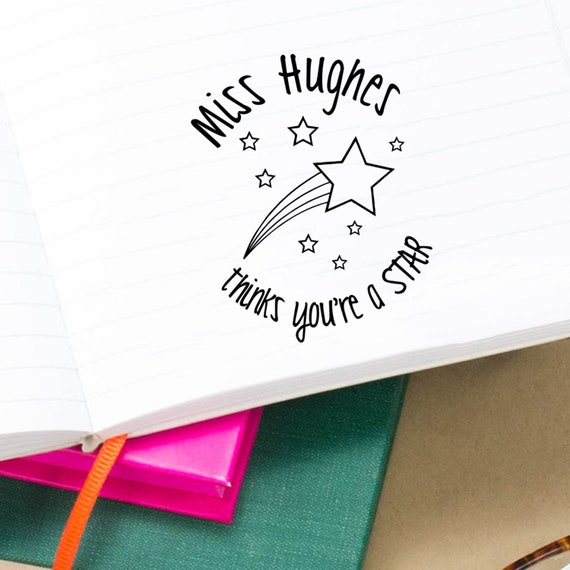 Miss Hughes
thinks you're a STAR